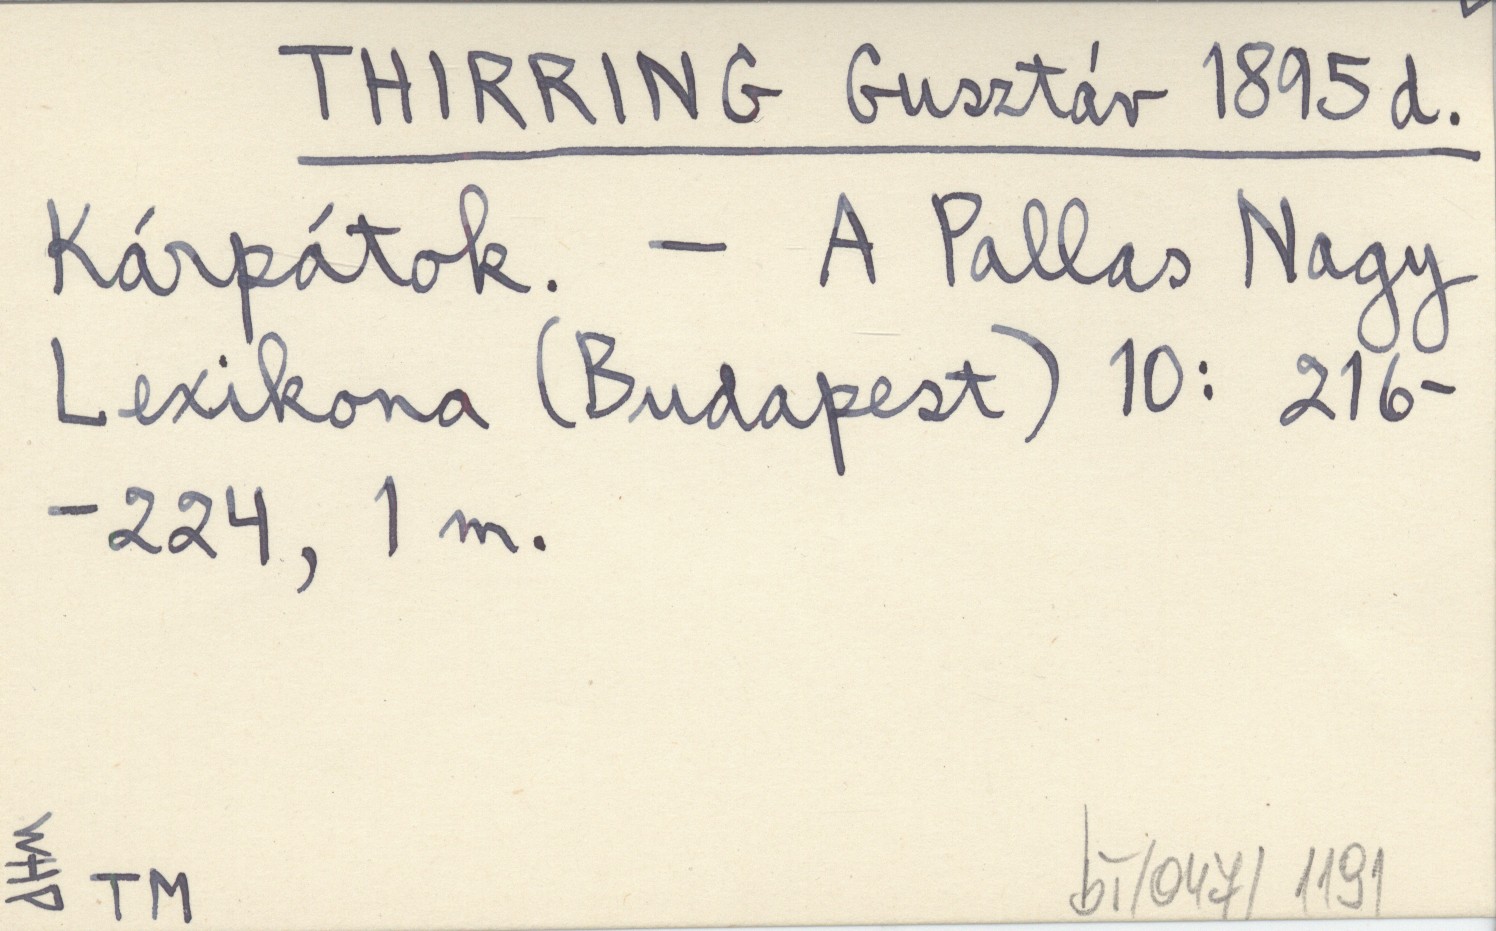 THIRRING Gusztáv 1895 d.
Kárpátok. — A Pallas Nagy
Lexikona (Budapest) 10: 216-
-224, 1 m.
TM
bī/047/ 1191